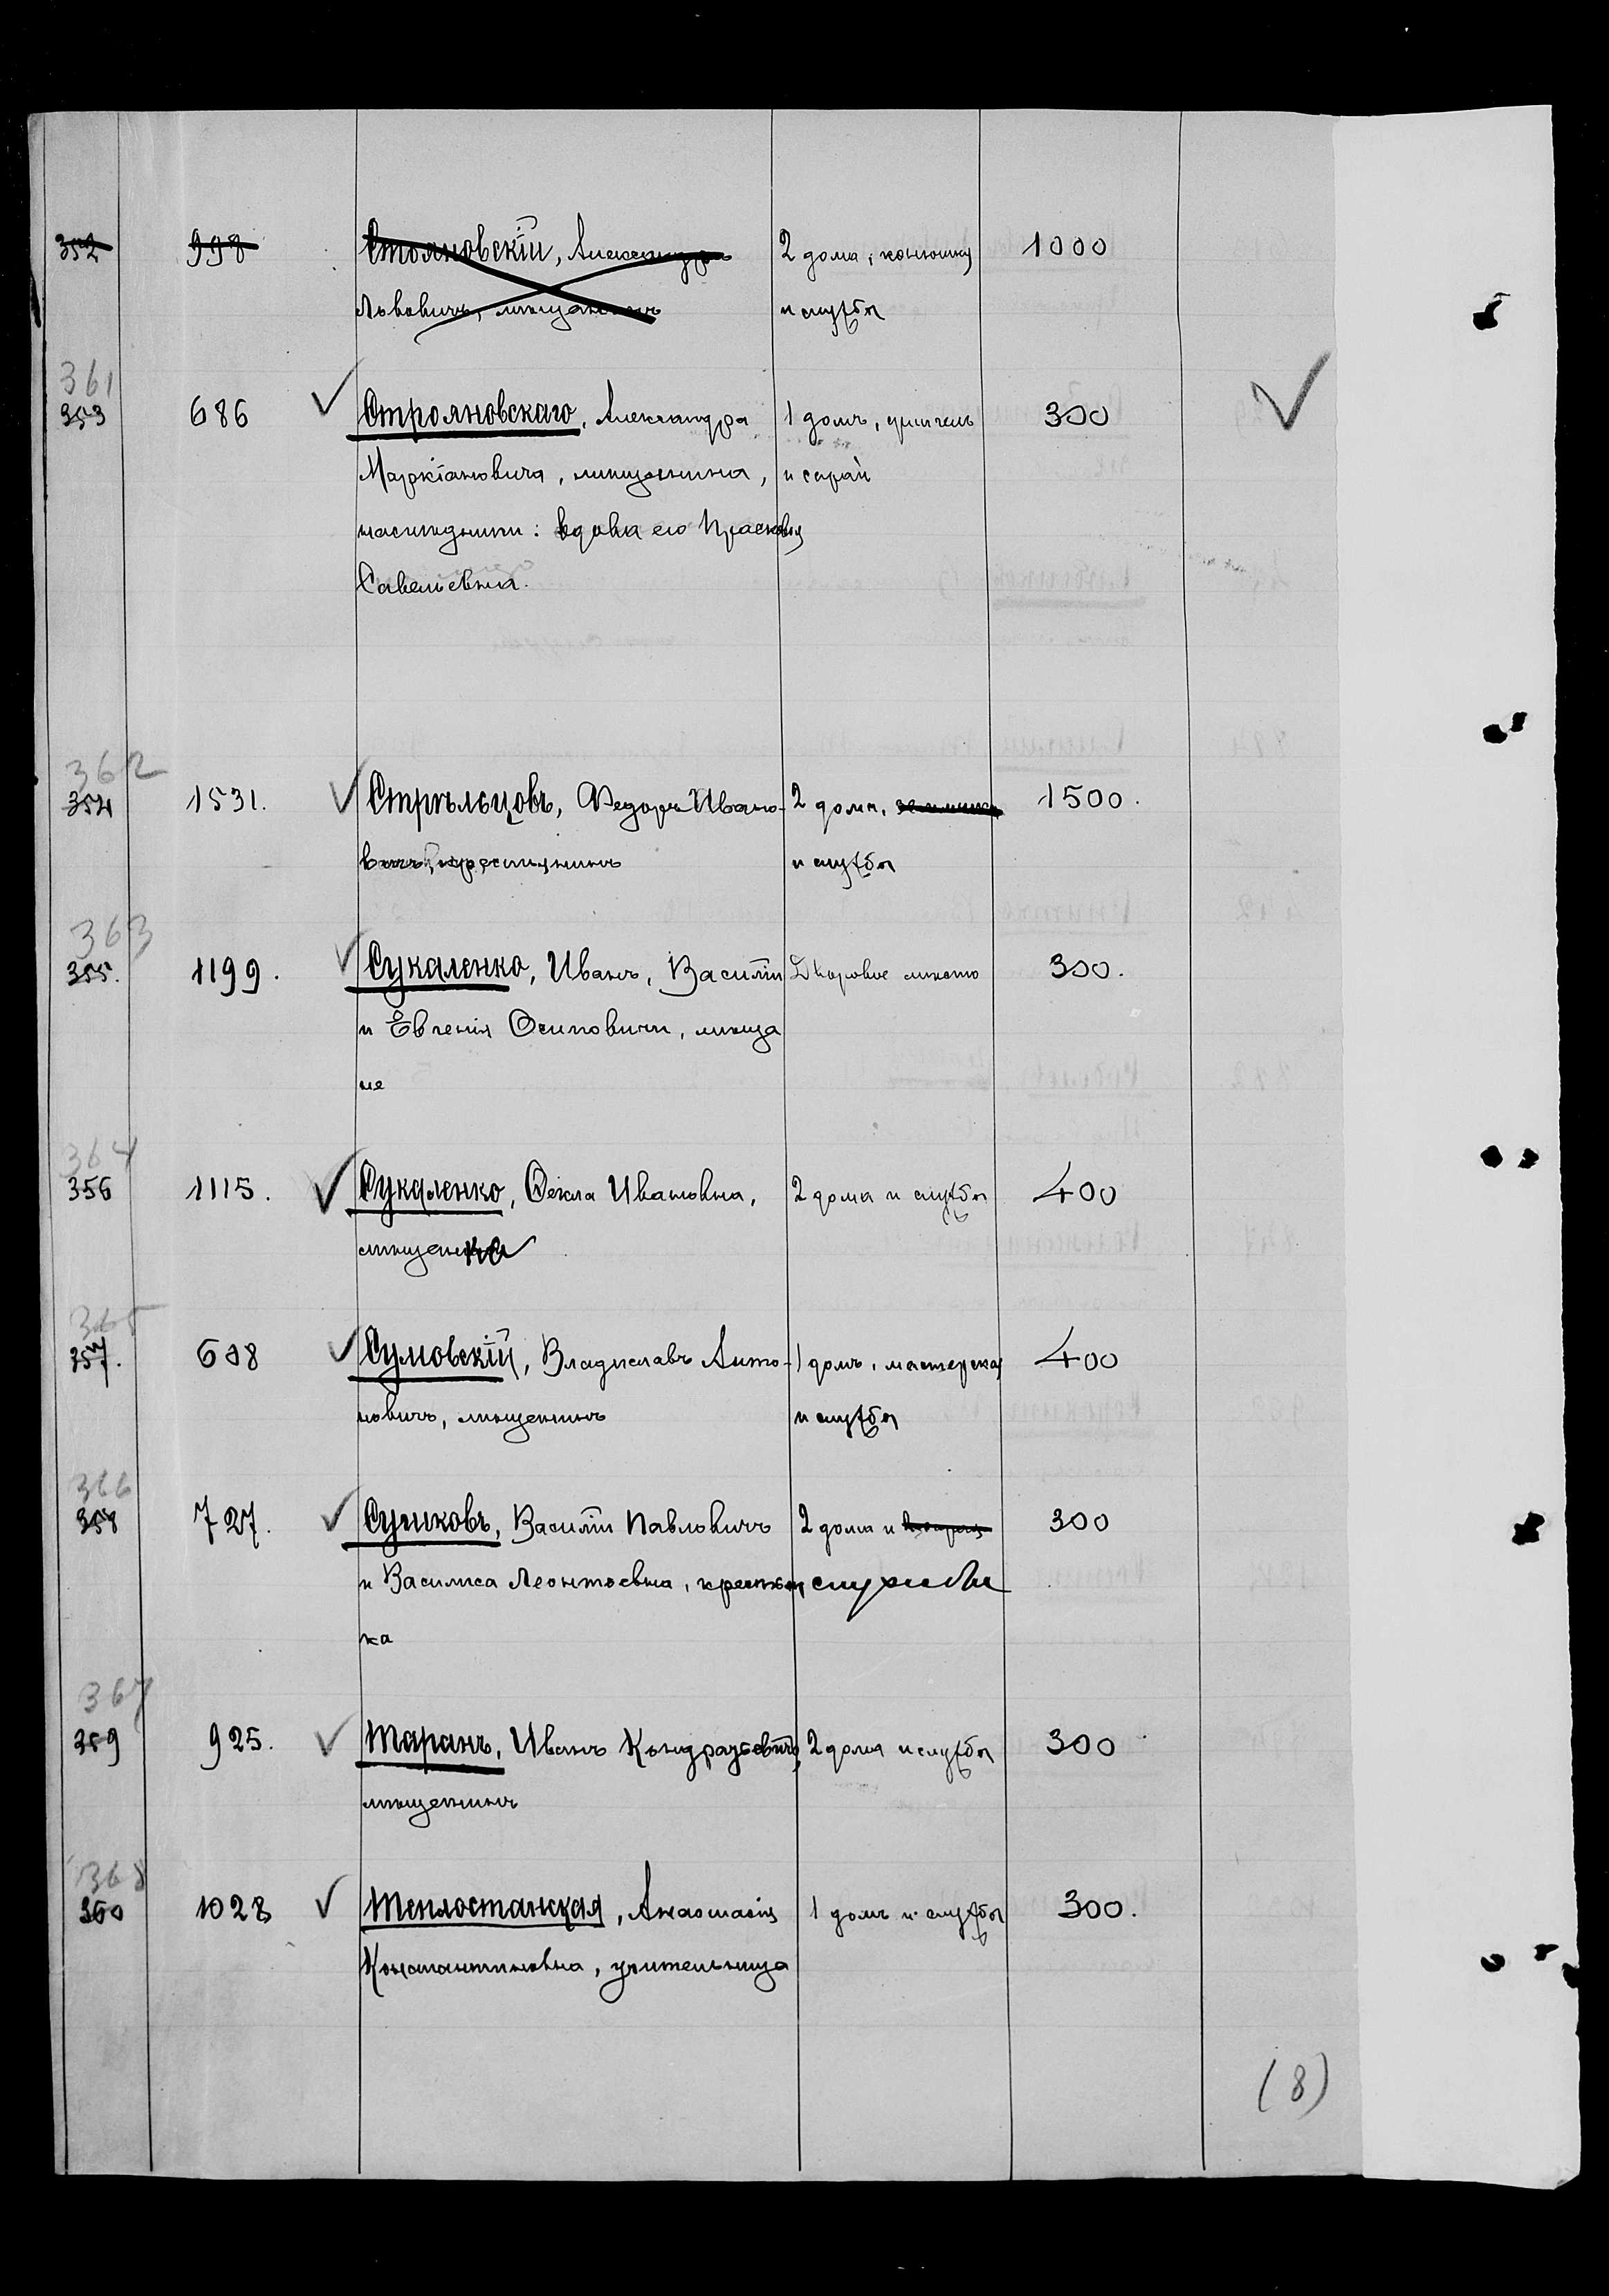 352 998 Стояновскій, Александръ 2 дома, конюшня 1000
Львовичъ, мѣщанинъ и службы
361
353 686 Строяновскаго, Александра 1 домъ, флигель 300
Маркіановича, мѣщанина, и сарай
наслѣдники: вдова его Прасковья
Савельевна.
362
354 1531. Стрѣльцовъ, Федоръ Ивано- 2 дома, 1500.
вичъ, крестьянинъ и службы
363
355. 1199. Сукаленко, Иванъ, Василій Дворовое мѣсто 300.
и Евгенія Осиповичи, мѣща
не
364
356 1115. Сукаленко, Фекла Ивановна, 2 дома и службы 400
мѣщанка
365
357. 608 Сумовскій, Владиславъ Анто- 1 домъ, мастерская 400
новичъ, мѣщанинъ и службы
366
358 727. Сушковъ, Василій Павловичъ 2 дома и 300
и Василиса Леонтьевна, крестьян службы
ка
367
359 925. Таранъ, Иванъ Кондратьевичъ, 2 дома и службы 300
мѣщанинъ
368
360 1028 Теплостанская, Анастасія 1 домъ и службы 300.
Константиновна, учительница
(8)